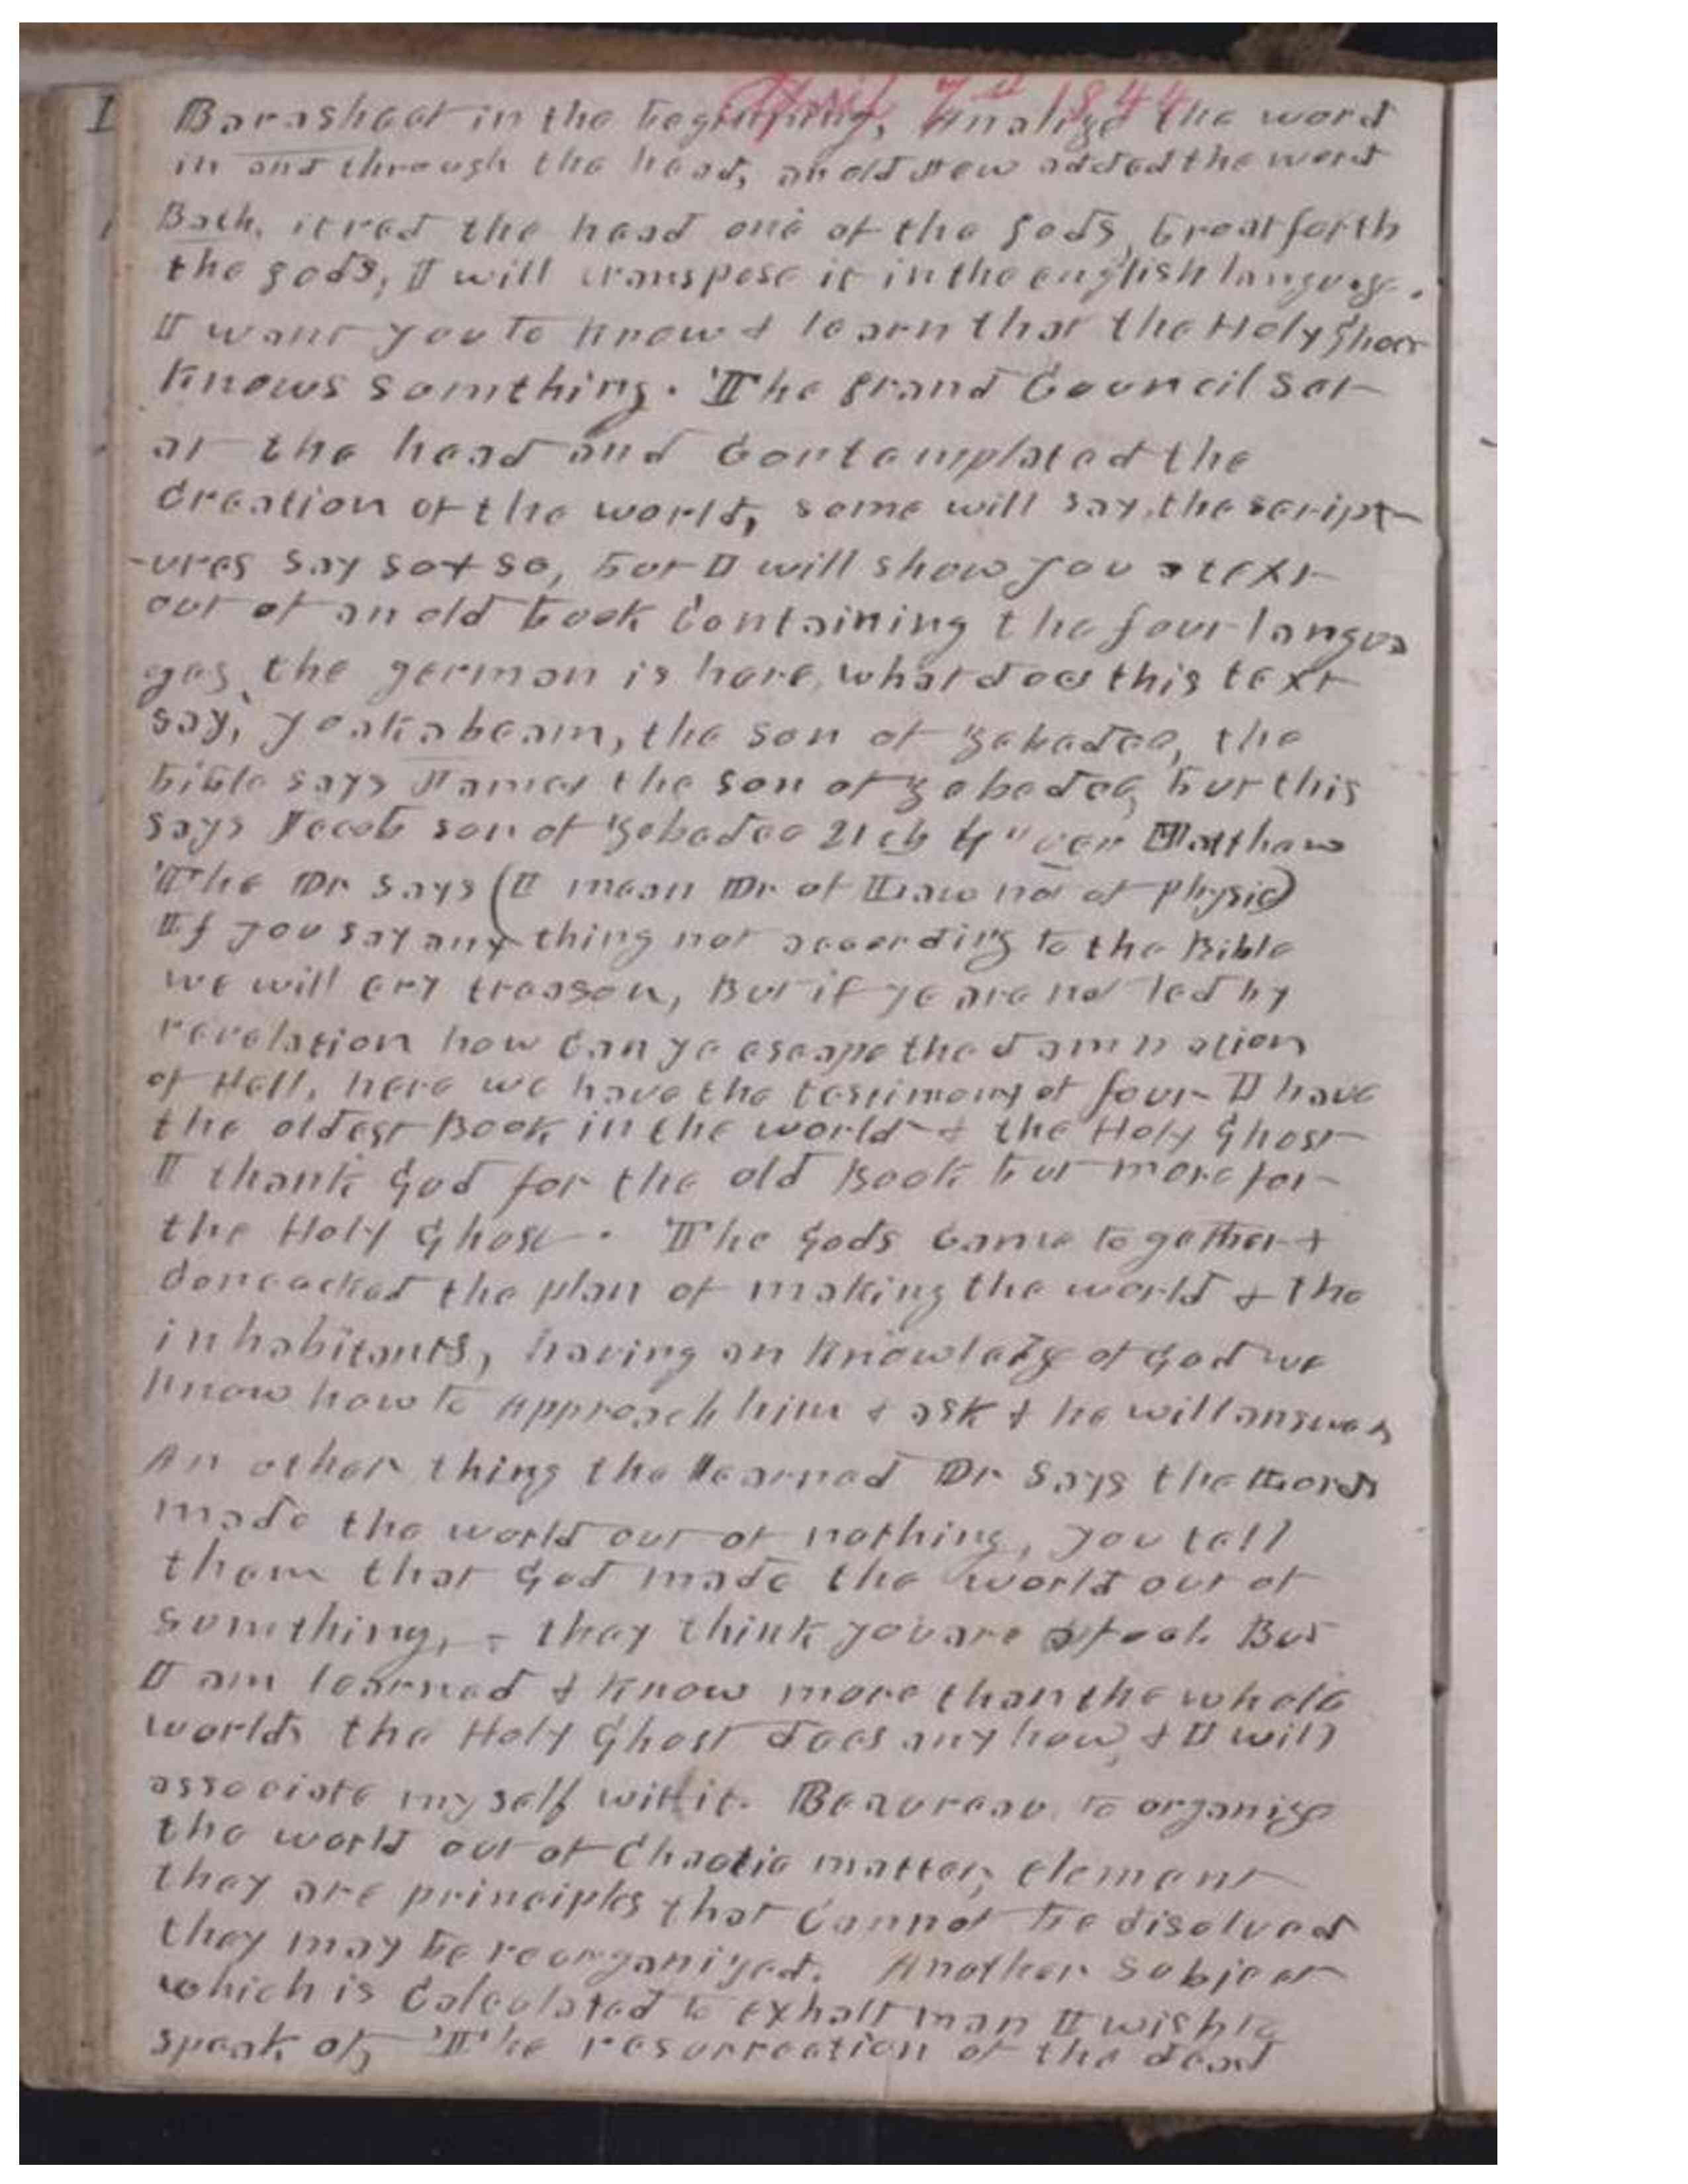 April 7th 1844
I Barasheet in the beginning, Analize the word
in and through the head, an old Jew added the word
Bath, it red the head one of the gods, broat forth
the gods, I will transpose it in the english language.
I want you to know & learn that the Holy Ghost
knows somthing. The grand Council sat
at the head and Contemplated the
Creation of the world, some will say, the script-
-ures say so & so, but I will show you a text
out of an old book Containing the four langua
ges, the german is here, what does this text
say, yoakabeam, the son of zebedee, the
bible says James the son of zebedee, but this
says Jacob son of zebedee 21 ch 4" ver Matthew
The Dr says (I mean Dr of Law not of physic)
If you say any thing not according to the Bible
we will cry treason, But if ye are not led by
revelation how can ye escape the damnation
of Hell, here we have the testimony of four I have
the oldest Book in the world & the Holy Ghost
I thank God for the old Book but more for
the Holy Ghost. The Gods came together &
concocked the plan of making the world & the
inhabitants, having an knowledge of God we
know how to Approach him & ask & he will answer
An other thing the learned Dr says the Lord
made the world out of nothing, you tell
them that God made the world out of
somthing, & they think you are a fool. But
I am learned & know more than the whole
world, the Holy Ghost does any how, & I will
associate my self with it. Beaureau, to organize
the world out of Chaotic matter, element
they are principles that Cannot be disolved
they may be reorganized. Another Subject
which is Calculated to exhalt man I wish to
speak of, The resurrection of the dead